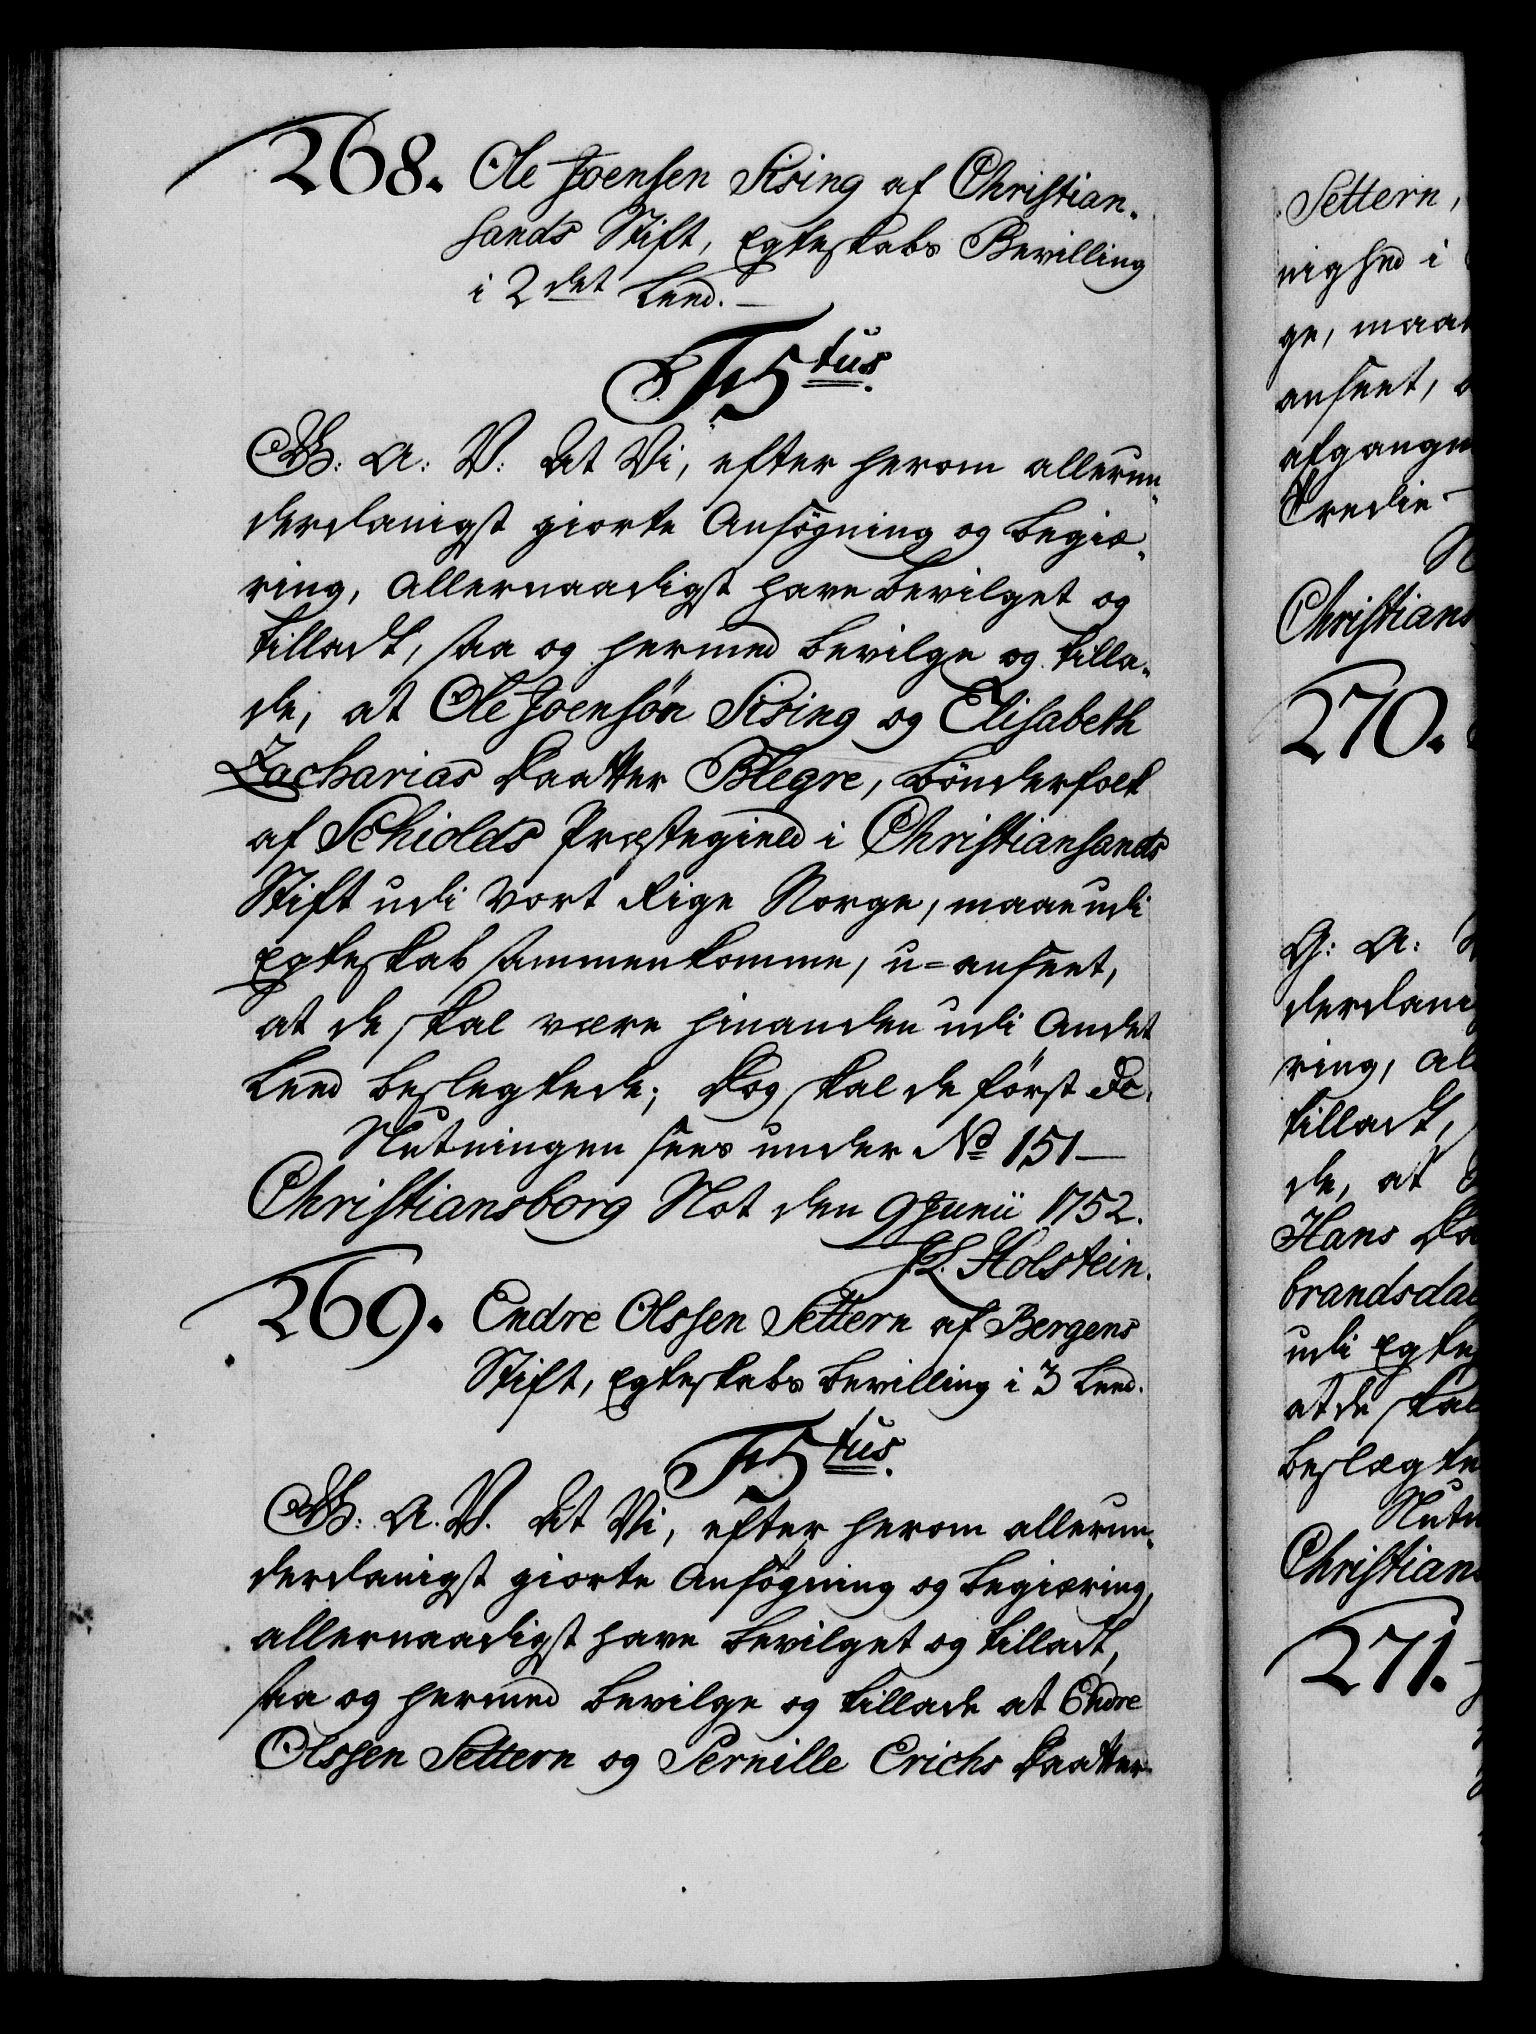 268. Ole Joensen Sising af Christian-
sands Stift, Egteskabs Bevilling
i 2det Leed.
F5tus.
G: A: V: At Vi, efter herom allerun-
derdanigst giorte Ansøgning og begiæ-
ring, allernaadigst have bevilget og
tilladt, saa og hermed bevilge og tilla-
de, at Ole Joensøn Sising og Elisabeth
Zacharias Daatter Blegre, bønderfolk
af Schiolds Præstegield i Christiansands
Stift udi Vort Rige Norge, maae udi
Egteskab sammenkomme, u-anseet,
at de skal være hinanden udi Andet
Leed beslegtede; Dog skal de først &c.
Slutningen sees under No 151
Christiansborg Slot den 9 Junii 1752.
J.L. Holstein.
269. Endre Olssen Settern af Bergens
Stift, Egteskabs bevilling i 3 Leed.
F5tus.
G: A. V. At Vi, efter herom allerun-
derdanigst giorte Ansøgning og begiæring,
allernaadigst have bevilget og tilladt,
saa og hermed bevilge og tillade at Endre
Olssen Settern og Pernille Erichs Daatter
Settern,
nighed i
ge, maa
anseet,
afgangne
tredie
Christians
270.
G: A:
derdani
ring, al
tilladt,
de, at
Hans Da
brandsda
udi Egte
at de skal
beslægte
Slutn
Christian
271.